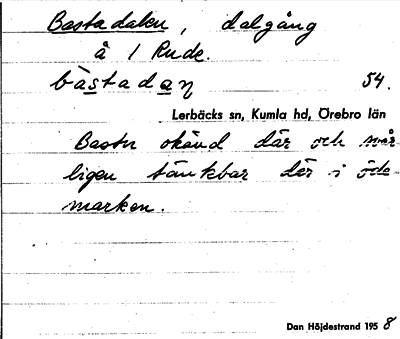 Bastadalen, dalgång
å 1 Rude.
bàstadaɳ 54.
Lerbäcks sn, Kumla hd, Örebro län
Bastu okänd där och svår-
ligen tänkbar där i öde-
marken.
Dan Höjdestrand 1958